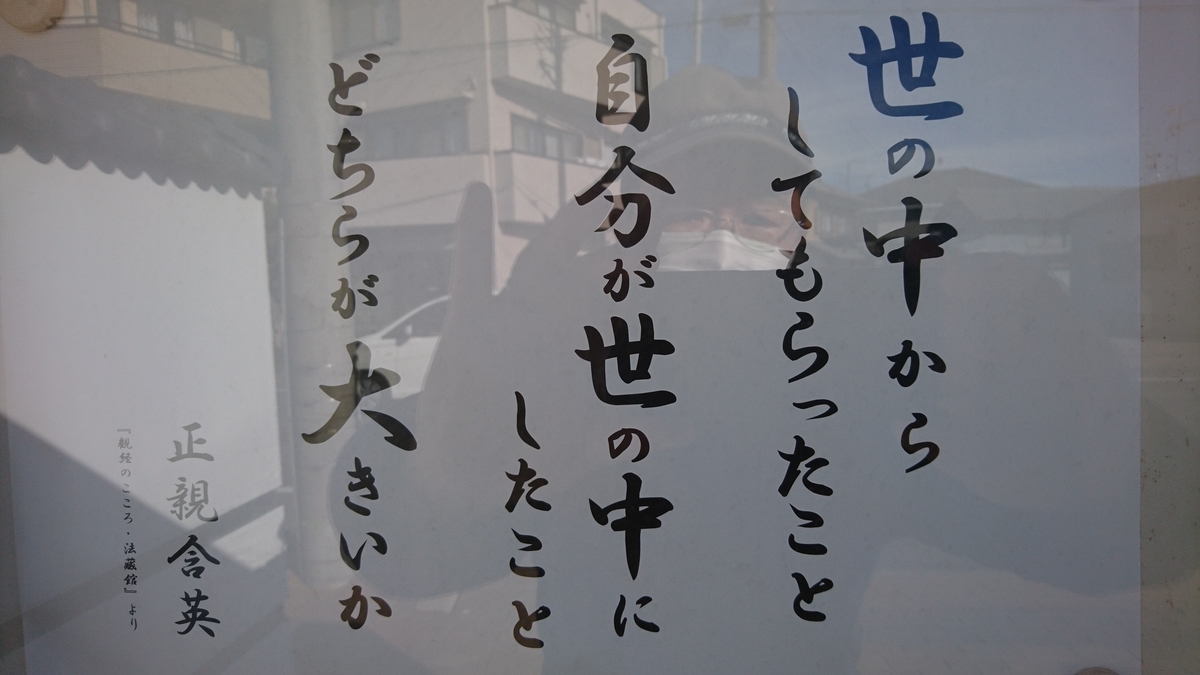 世の中から
してもらったこと
自分が世の中に
したこと
どちらが大きいか
正親含英
『観経のこころ・法蔵館』より